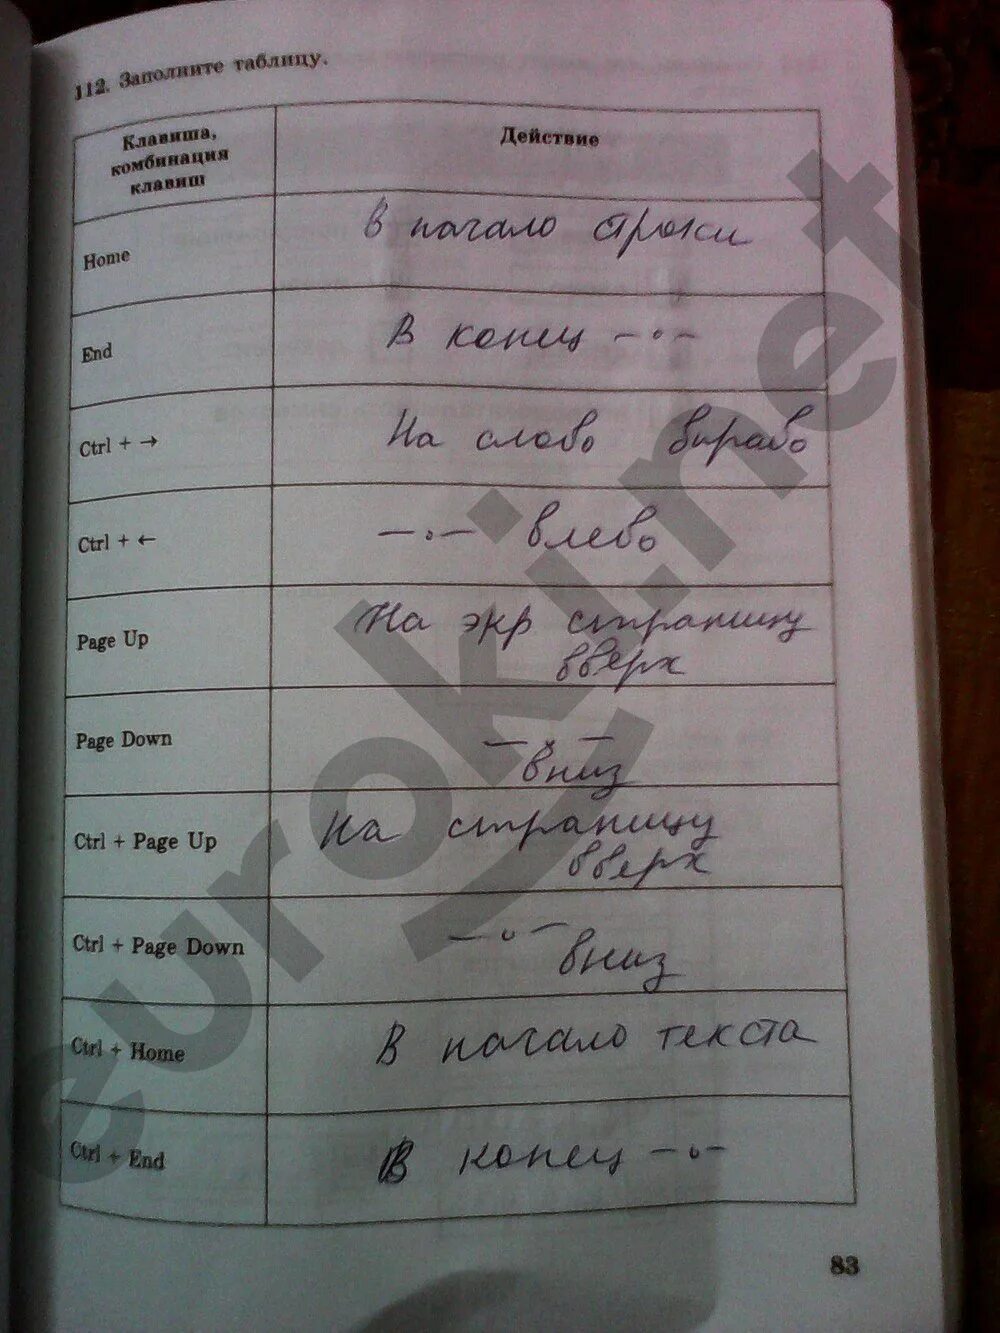 112. Заполните таблицу.
Клавиша,
комбинация
клавиш
Действие
Home
В начало строки
End
В конец —〃—
Ctrl + →
На слово вправо
Ctrl + ←
—〃— влево
Page Up
На экр страницу
вверх
Page Down
—〃—
вниз
Ctrl + Page Up
На страницу
вверх
Ctrl + Page Down
—〃—
вниз
Ctrl + Home
В начало текста
Ctrl + End
В конец —〃—
83
eurokin.net